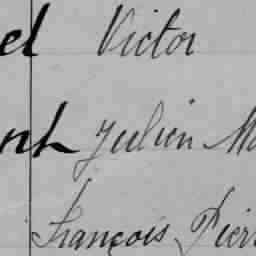 el Victor
nt Julien Ma
François Pier